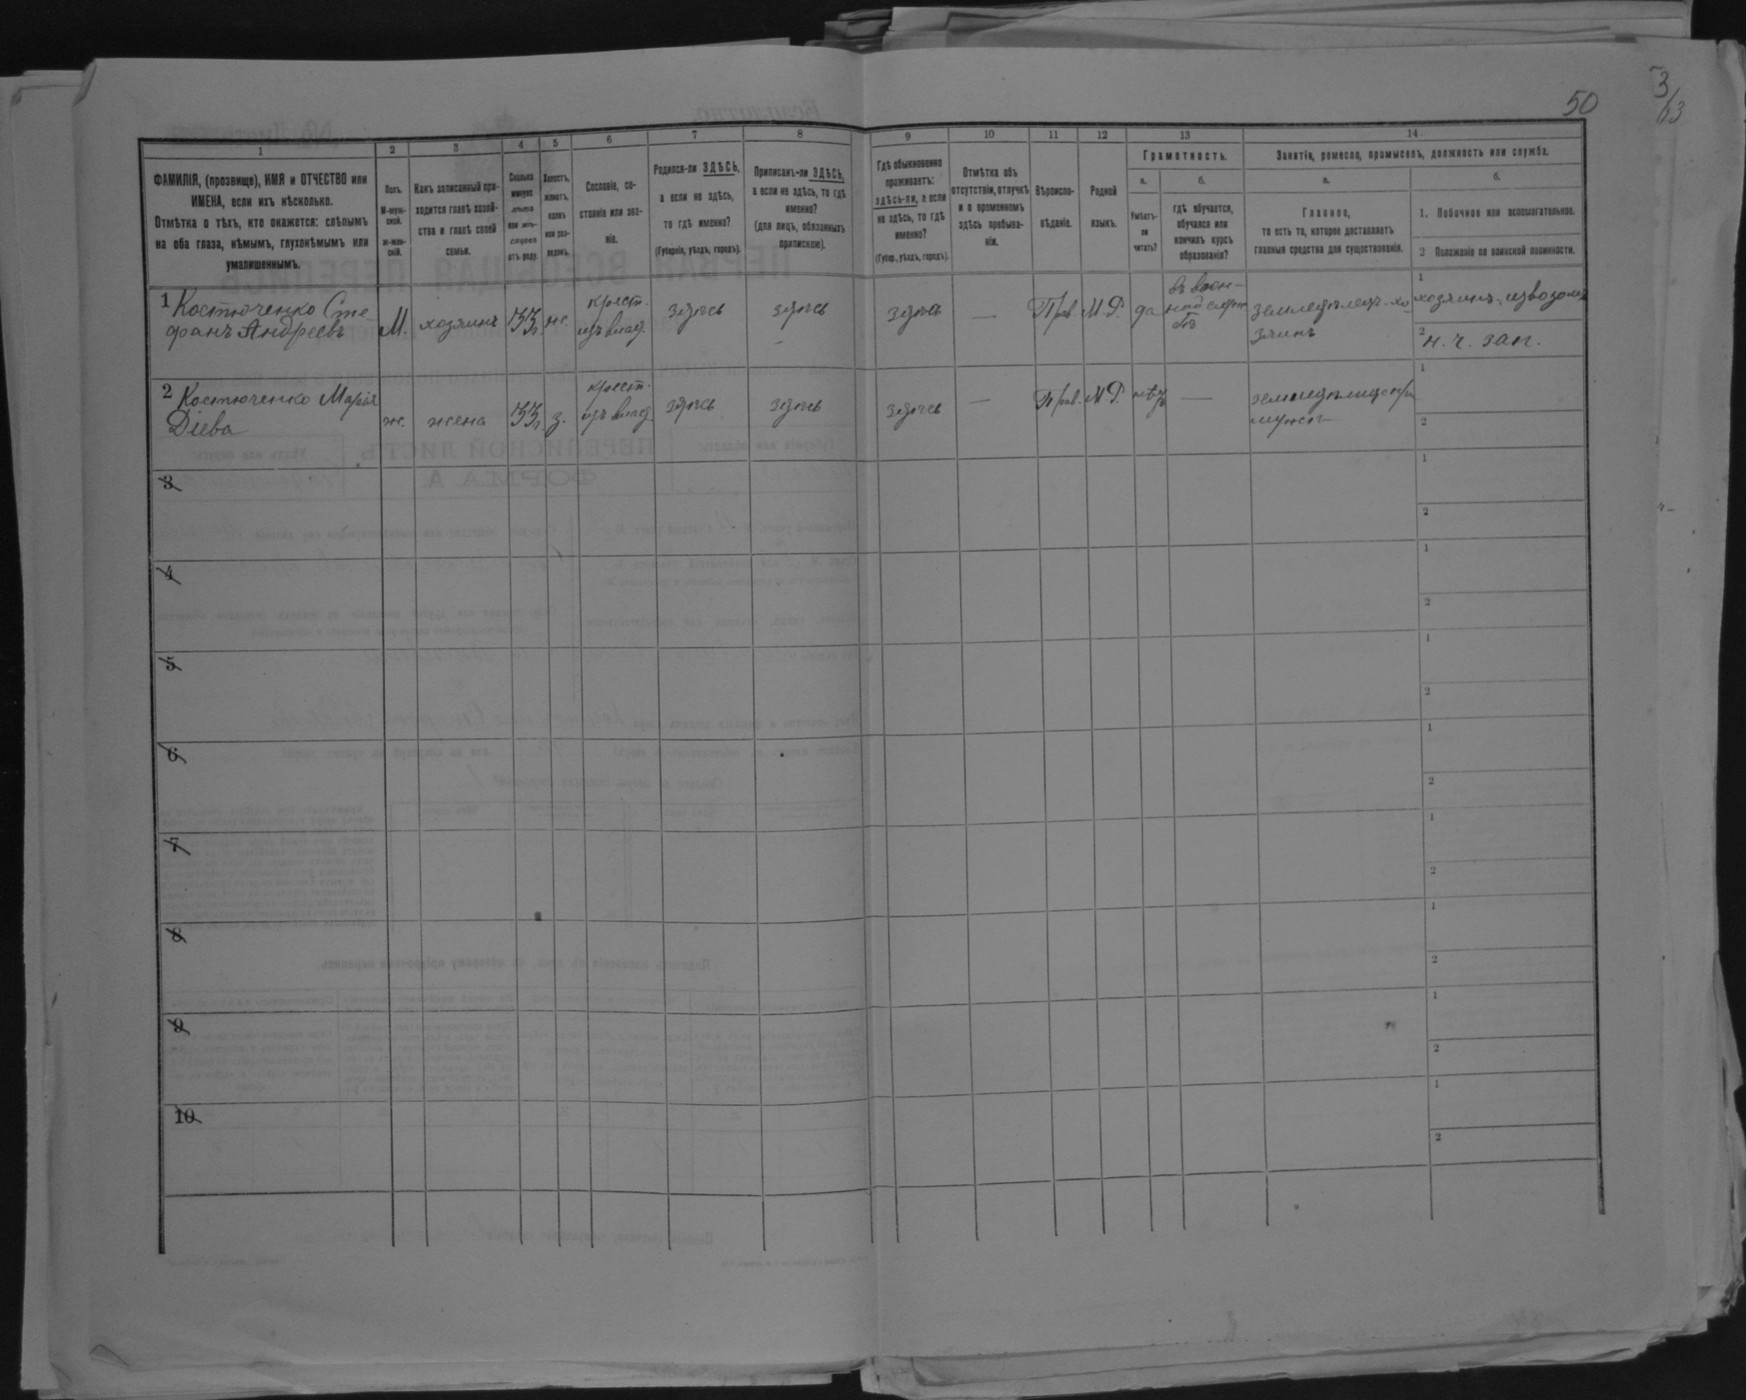 50
3/13
1
2
3
4
5
6
7
8
9
10
11
12
13
14
ФАМИЛІЯ, (прозвище), ИМЯ и ОТЧЕСТВО или
ИМЕНА, если ихъ нѣсколько.
Отмѣтка о тѣхъ, кто окажется: слѣпымъ
на оба глаза, нѣмымъ, глухонѣмымъ или
умалишеннымъ.
Полъ.
М-муж-
ской.
ж-жен-
скій.
Какъ записанный при-
ходится главѣ хозяй-
ства и главѣ своей
семьи.
Сколько
минуло
лѣтъ
или мѣ-
сяцевъ
отъ роду.
Холостъ,
женатъ,
вдовъ
или раз-
веденъ.
Сословіе, со-
стояніе или зва-
ніе.
Родился-ли ЗДѢСЬ,
а если не здѣсь,
то гдѣ именно?
(Губернія, уѣздъ, городъ).
Приписанъ-ли ЗДѢСЬ,
а если не здѣсь, то гдѣ
именно?
(для лицъ, обязанныхъ
припискою).
Гдѣ обыкновенно
проживаетъ:
здѣсь-ли, а если
не здѣсь, то гдѣ
именно?
(Губер., уѣздъ, городъ).
Отмѣтка объ
отсутствіи, отлучкѣ
и о временномъ
здѣсь пребыва-
ніи.
Вѣроиспо-
вѣданіе.
Родной
языкъ.
Грамотность.
а.
б.
Умѣетъ-
ли
читать?
гдѣ обучается,
обучался или
кончилъ курсъ
образованія?
Занятіе, ремесло, промыселъ, должность или служба.
а.
б.
Главное,
то есть то, которое доставляетъ
главныя средства для существованія.
1. Побочное или вспомогательное.
2 Положеніе по воинской повинности.
1 Костюченко Сте-
фанъ Андреевъ
М.
хозяинъ
ж.
крест.
изъ влад.
здѣсь
здѣсь
здѣсь
—
Прав.
М.Р.
да
въ воен-
ной служ-
бѣ
земледѣлецъ-хо-
зяинъ
1
2 н. ч. зап.
2 Костюченко Марія
Діева
ж.
жена
з.
крест.
изъ влад.
здѣсь
здѣсь
здѣсь
—
Прав.
М.Р.
нѣтъ
—
1
2
3
1
2
4
1
2
5
1
2
6
1
2
7
1
2
8
1
2
9
1
2
10
1
2